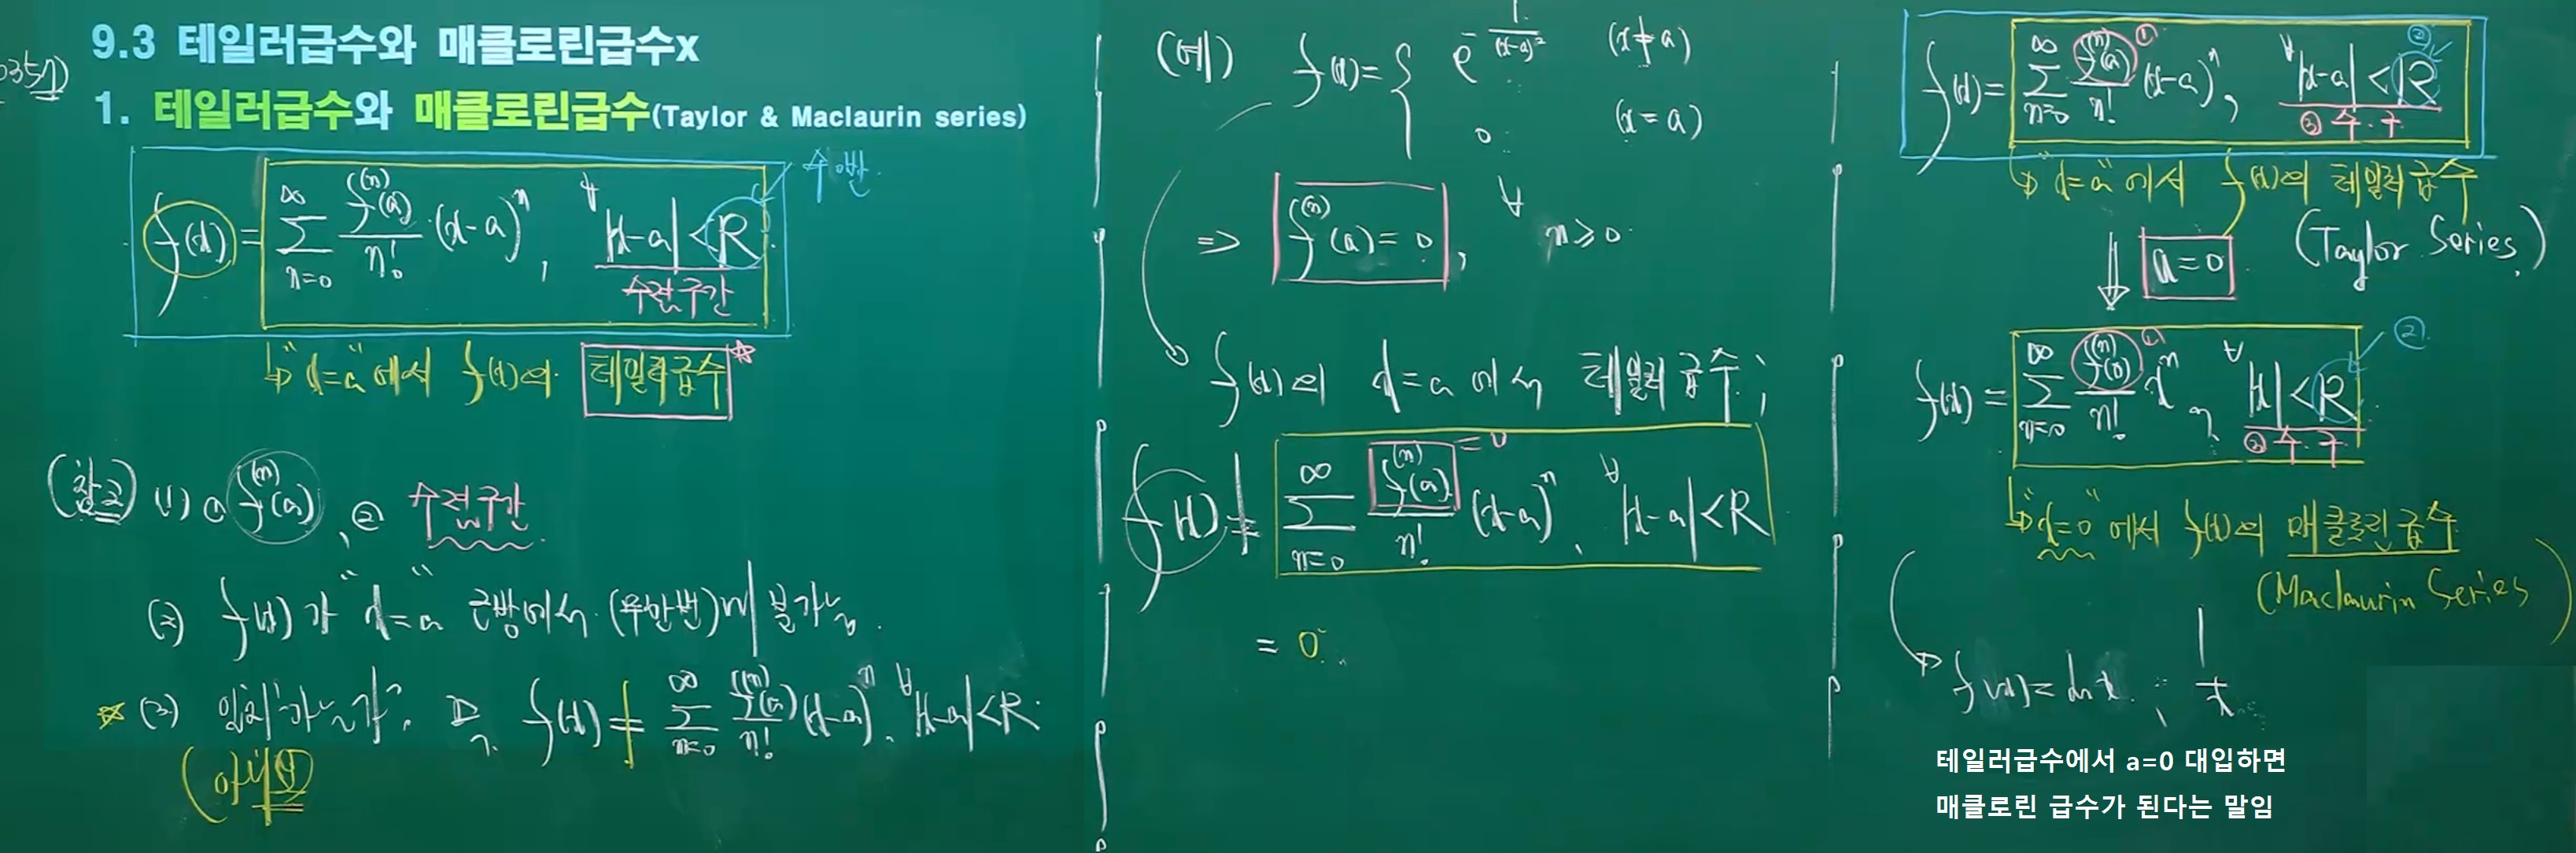 9.3 테일러급수와 매클로린급수x
1. 테일러급수와 매클로린급수(Taylor & Maclaurin series)
f(x) = ∑_{n=0}^{∞} f^{(n)}(a)/n! · (x-a)^n, ∀|x-a| < R.
수렴구간
"x=a"에서 f(x)의 테일러급수
(참고) (1) ① f^{(n)}(a), ② 수렴구간
(2) f(x)가 "x=a" 근방에서 (무한번)
(3) f(x) ≠ ∑_{n=0}^{∞} f^{(n)}(a)/n! (x-a)^n, ∀|x-a| < R.
(예) f(x) = { e^{-1/(x-a)^2} (x≠a)
0 (x=a)
=> f^{(n)}(a) = 0, ∀ n ≥ 0.
f(x)의 x=a에서 테일러급수;
f(x) ≠ ∑_{n=0}^{∞} f^{(n)}(a)/n! (x-a)^n, ∀|x-a| < R
= 0
= 0.
f(x) = ∑_{n=0}^{∞} f^{(n)}(a)/n! (x-a)^n, ∀|x-a| < R
① ② ③ 수.구
"x=a"에서 f(x)의 테일러급수
(Taylor Series.)
⇓ a=0
f(x) = ∑_{n=0}^{∞} f^{(n)}(0)/n! x^n, ∀|x| < R
① ② ③ 수.구
"x=0"에서 f(x)의 매클로린급수
(Maclaurin Series)
f(x) = ln x, 1/x
테일러급수에서 a=0 대입하면
매클로린 급수가 된다는 말임